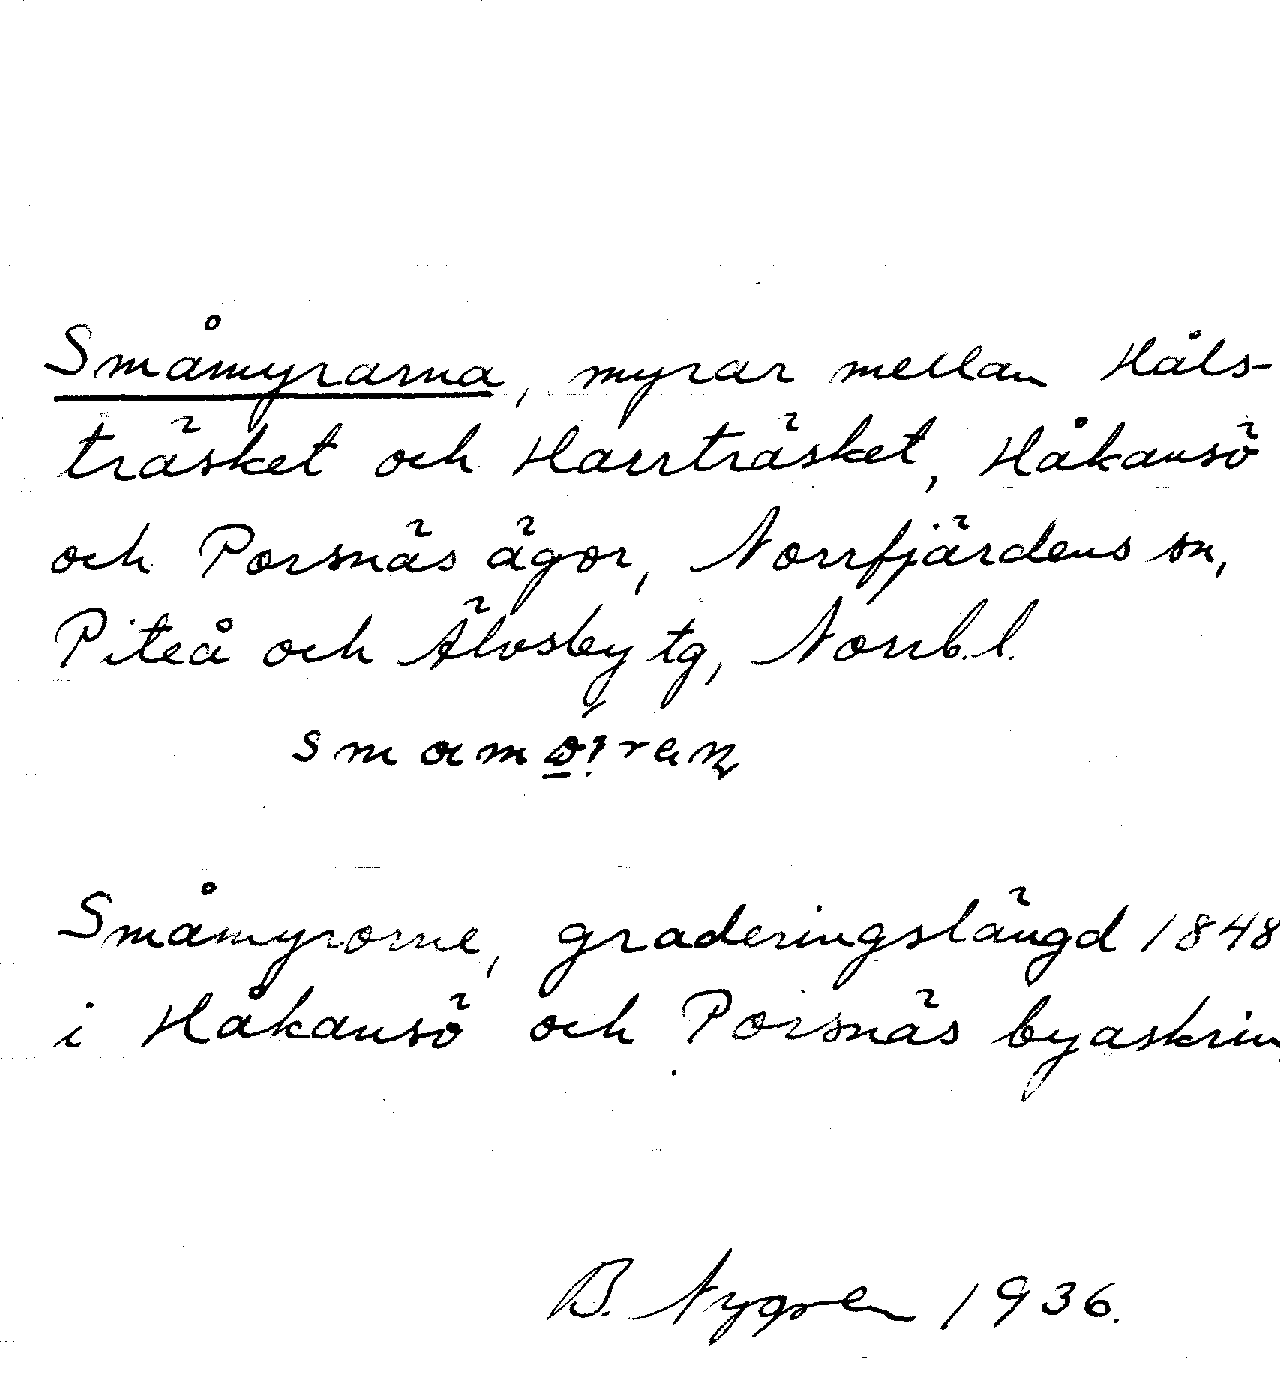 Småmyrarna, myrar mellan Håls-
träsket och Harrträsket, Håkansö
och Porsnäs ägor, Norrfjärdens sn,
Piteå och Älvsby tg, Norrb.l.
Småmyrorne, graderingslängd 1848
i Håkansö och Porsnäs byaskrin
B. Nygren 1936.